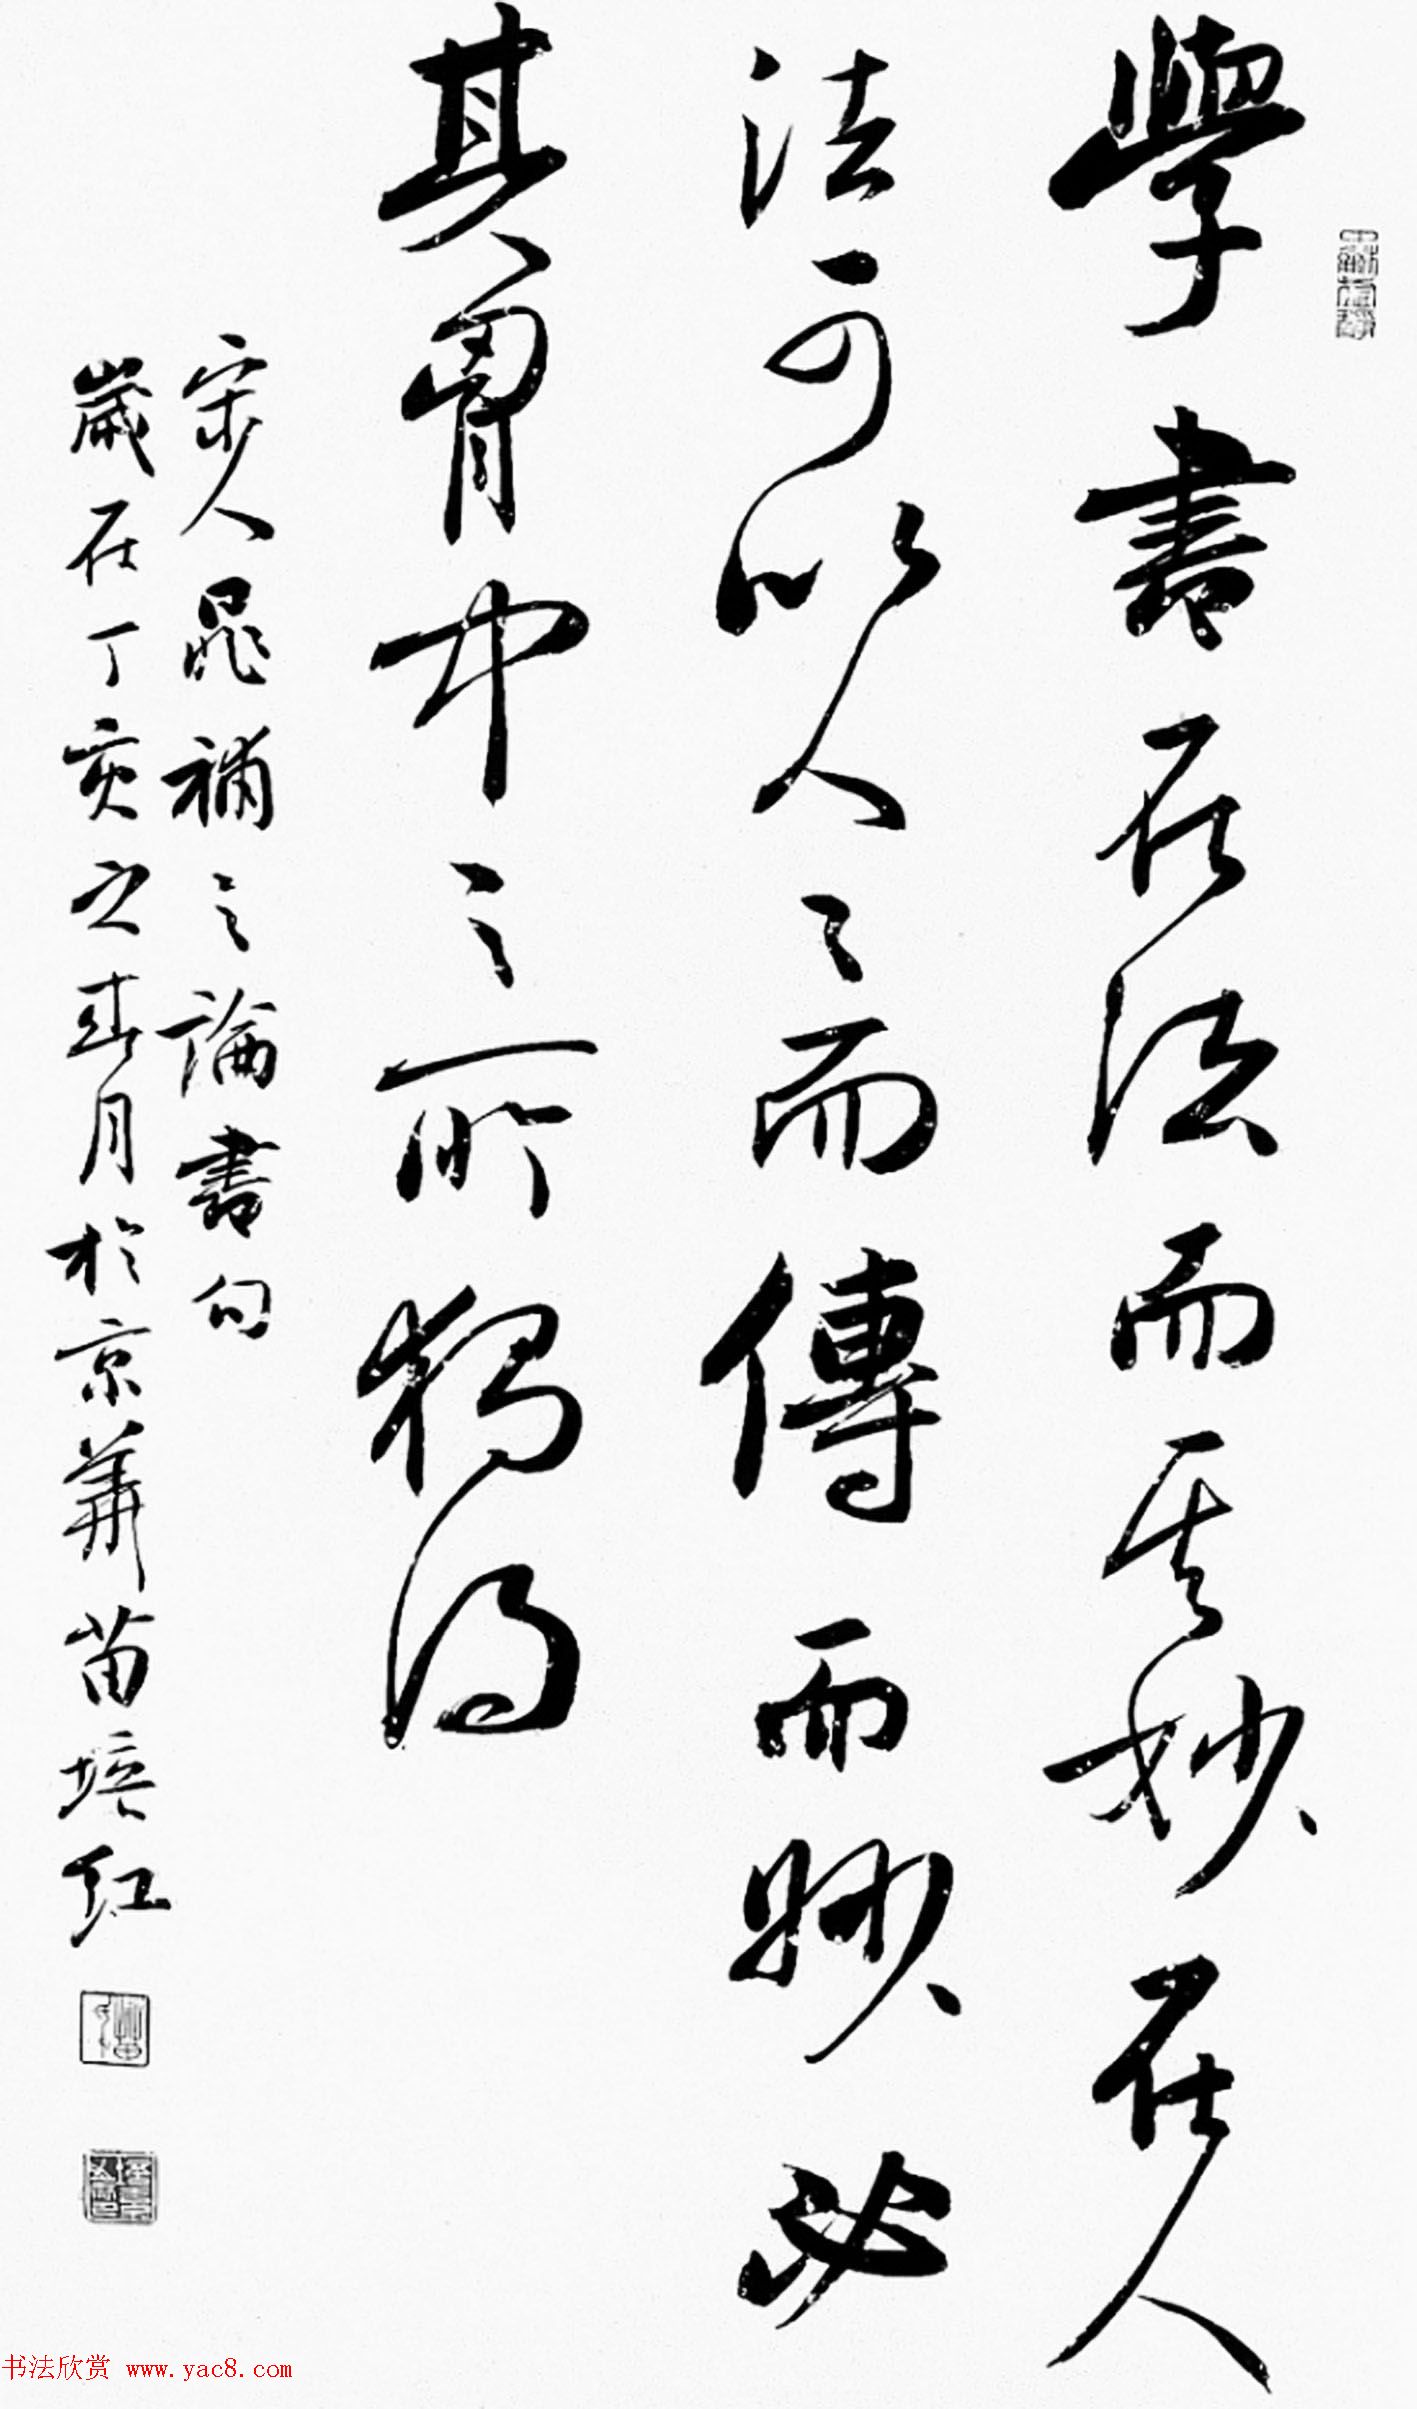 學書在法而其妙在人
法可以人〻而傳而眇必
其胷中之所獨得
宋人晁補之論書句
歲在丁亥之春月於京華苗培红
书法欣赏 www.yac8.com